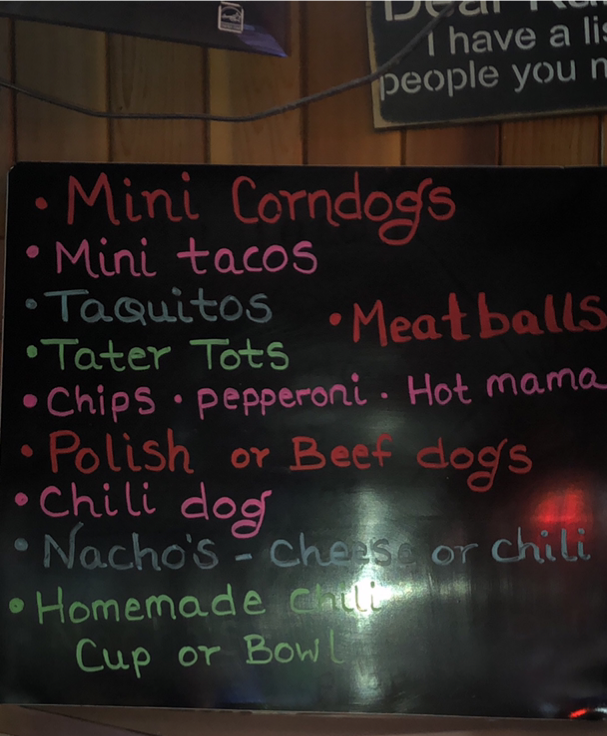 Dear
I have a
people you
• Mini Corndogs
• Mini tacos
• Taquitos
• Meatballs
• Tater Tots
• Chips • pepperoni • Hot mama
• Polish or Beef dogs
• Chili dog
• Nacho's - cheese or chili
• Homemade Chili
Cup or Bowl